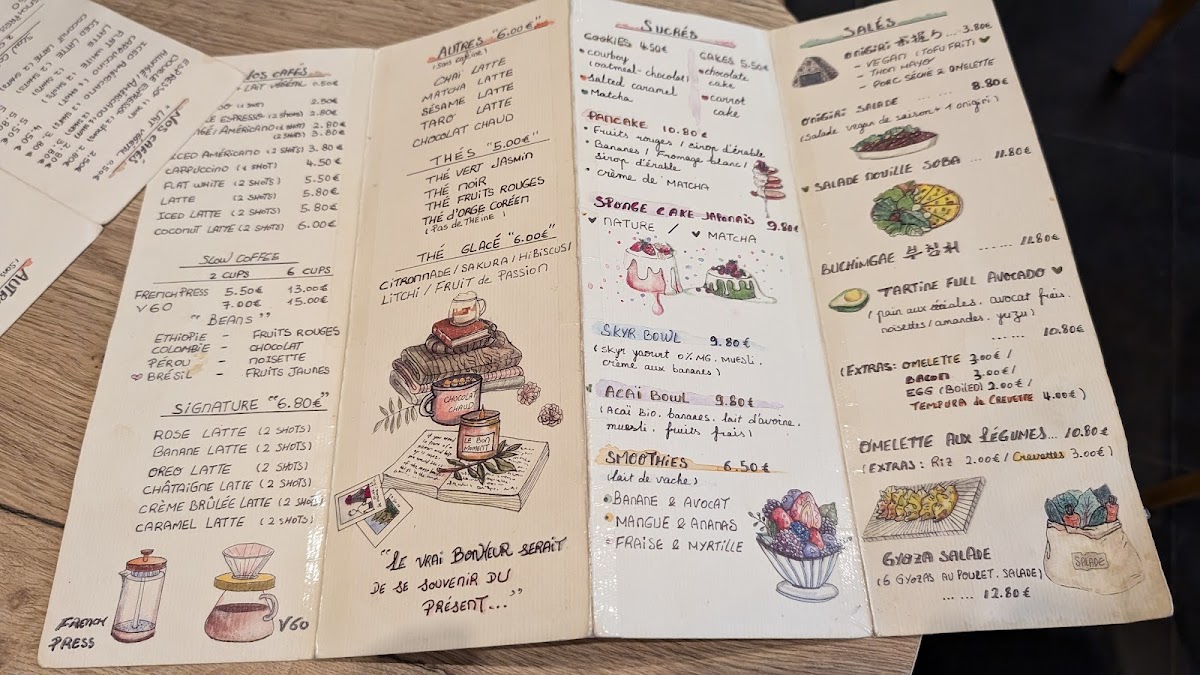 Nos cafés
LAIT VÉGÉTAL 0.50€
(1 SHOT) 2.50€
ESPRESSO (2 SHOTS) 2.80€
AMÉRICANO (1 SHOT) 2.80€
(2 SHOTS) 3.80€
ICED AMÉRICANO (2 SHOTS) 3.80€
CAPPUCCINO (1 SHOT) 4.50€
FLAT WHITE (2 SHOTS) 5.50€
LATTE (2 SHOTS) 5.80€
ICED LATTE (2 SHOTS) 5.80€
COCONUT LATTE (2 SHOTS) 6.00€
SLOW COFFEE
2 CUPS 6 CUPS
FRENCH PRESS 5.50€ 13.00€
V60 7.00€ 15.00€
"BEANS"
ETHIOPIE - FRUITS ROUGES
COLOMBIE - CHOCOLAT
PÉROU - NOISETTE
BRÉSIL - FRUITS JAUNES
SIGNATURE "6.80€"
ROSE LATTE (2 SHOTS)
BANANE LATTE (2 SHOTS)
OREO LATTE (2 SHOTS)
CHÂTAIGNE LATTE (2 SHOTS)
CRÈME BRÛLÉE LATTE (2 SHOTS)
CARAMEL LATTE (2 SHOTS)
FRENCH PRESS
V60
AUTRES "6.00€"
(sans caféine)
CHAI LATTE
MATCHA LATTE
SÉSAME LATTE
TARO LATTE
CHOCOLAT CHAUD
THÉS "5.00€"
THÉ VERT JASMIN
THÉ NOIR
THÉ FRUITS ROUGES
THÉ D'ORGE CORÉEN
(Pas de THÉINE)
THÉ GLACÉ "6.00€"
CITRONNADE / SAKURA / HIBISCUS /
LITCHI / FRUIT de PASSION
CHOCOLAT
CHAUD
LE BON
MOMENT
"LE VRAI BONHEUR SERAIT
DE SE SOUVENIR DU
PRÉSENT..."
SUCRÉS
COOKIES 4.50€
• cowboy
(oatmeal-chocolat)
• salted caramel
• Matcha
CAKES 5.50€
• chocolate
cake
• carrot
cake
PANCAKE 10.80€
• Fruits rouges / sirop d'érable
• Bananes / Fromage blanc /
sirop d'érable
• crème de MATCHA
SPONGE CAKE JAPONAIS 9.80€
♥ NATURE / ♥ MATCHA
SKYR BOWL 9.80€
(skyr yaourt 0% MG. muesli.
crème aux bananes)
ACAÏ BOWL 9.80€
(Acaï Bio. bananes. lait d'avoine.
muesli. fruits frais)
SMOOTHIES 6.50€
(lait de vache)
• BANANE & AVOCAT
• MANGUE & ANANAS
• FRAISE & MYRTILLE
SALÉS
ONIGIRI ... 3.80€
- VEGAN (TOFU FRIT) ♥
- THON MAYO
- PORC SÉCHÉ & OMELETTE
ONIGIRI SALADE ... 8.80€
(Salade vegan de saison + 1 onigiri)
♥ SALADE NOUILLE SOBA ... 11.80€
BUCHINGAE 부침개 ... ... 11.80€
TARTINE FULL AVOCADO ♥
(pain aux céréales. avocat frais.
noisettes/amandes. yuzu)
... ... 10.80€
(EXTRAS: OMELETTE 3.00€ /
BACON 3.00€ /
EGG (BOILED) 2.00€ /
TEMPURA de CREVETTE 4.00€)
OMELETTE AUX LÉGUMES... 10.80€
(EXTRAS: RIZ 2.00€ / Crevettes 3.00€)
GYOZA SALADE
(6 GYOZAS AU POULET. SALADE)
... ... 12.80€
SALADE